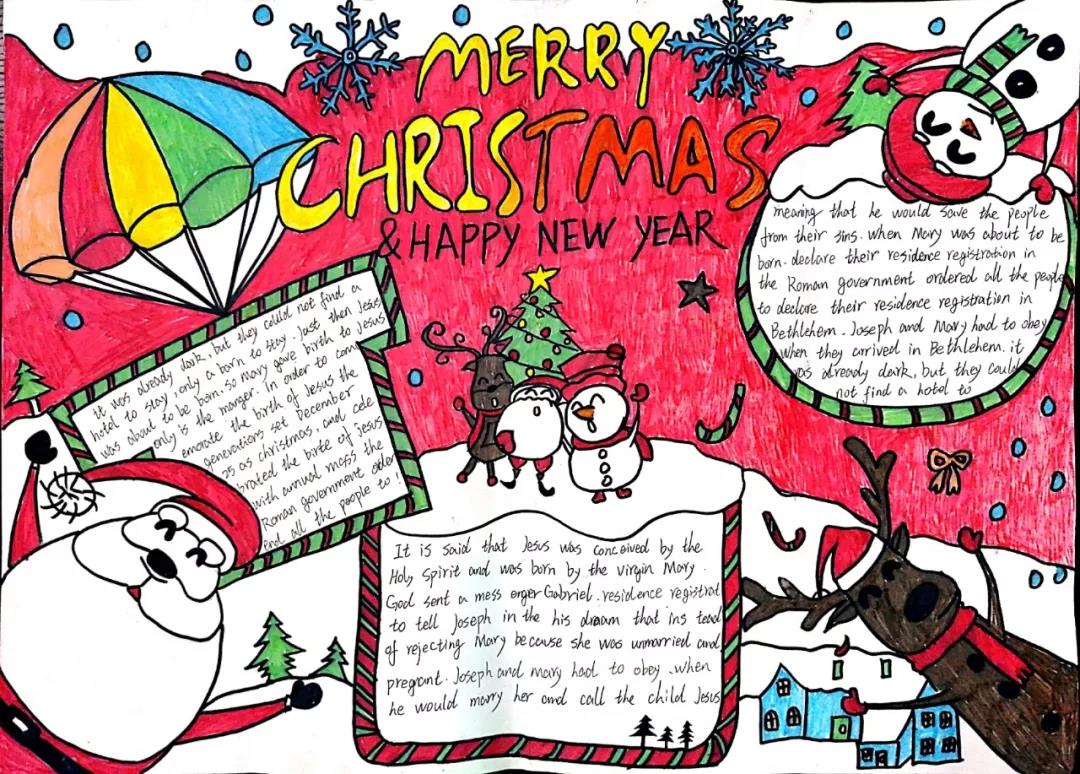 MERRY
CHRISTMAS
& HAPPY NEW YEAR
It was already dark, but they could not find a
hotel to stay, only a born to stay. Just then Jesus
was about to be born. so mary gave birth to Jesus
only is the manger. In order to com
emorate the birth of Jesus the
generations set December
25 as christmas, and cele
brated the birte of jesus
with annual mass the
Roman government order
end all the people to !
It is said that Jesus was conceived by the
Holy Spirit and was born by the virgin Mary.
God sent a mess enger Gabriel. residence registrat
to tell Joseph in the his dream that ins tead
of rejecting Mary because she was unmarried and
pregnant. Joseph and mary had to obey. when
he would marry her and call the child Jesus
meaning that he would save the people
from their sins. when Mary was about to be
born. declare their residence registration in
the Roman government ordered all the people
to declare their residence registration in
Bethlehem. Joseph and Mary had to obey
when they arrived in Bethlehem. it
was already dark, but they could
not find a hotel to